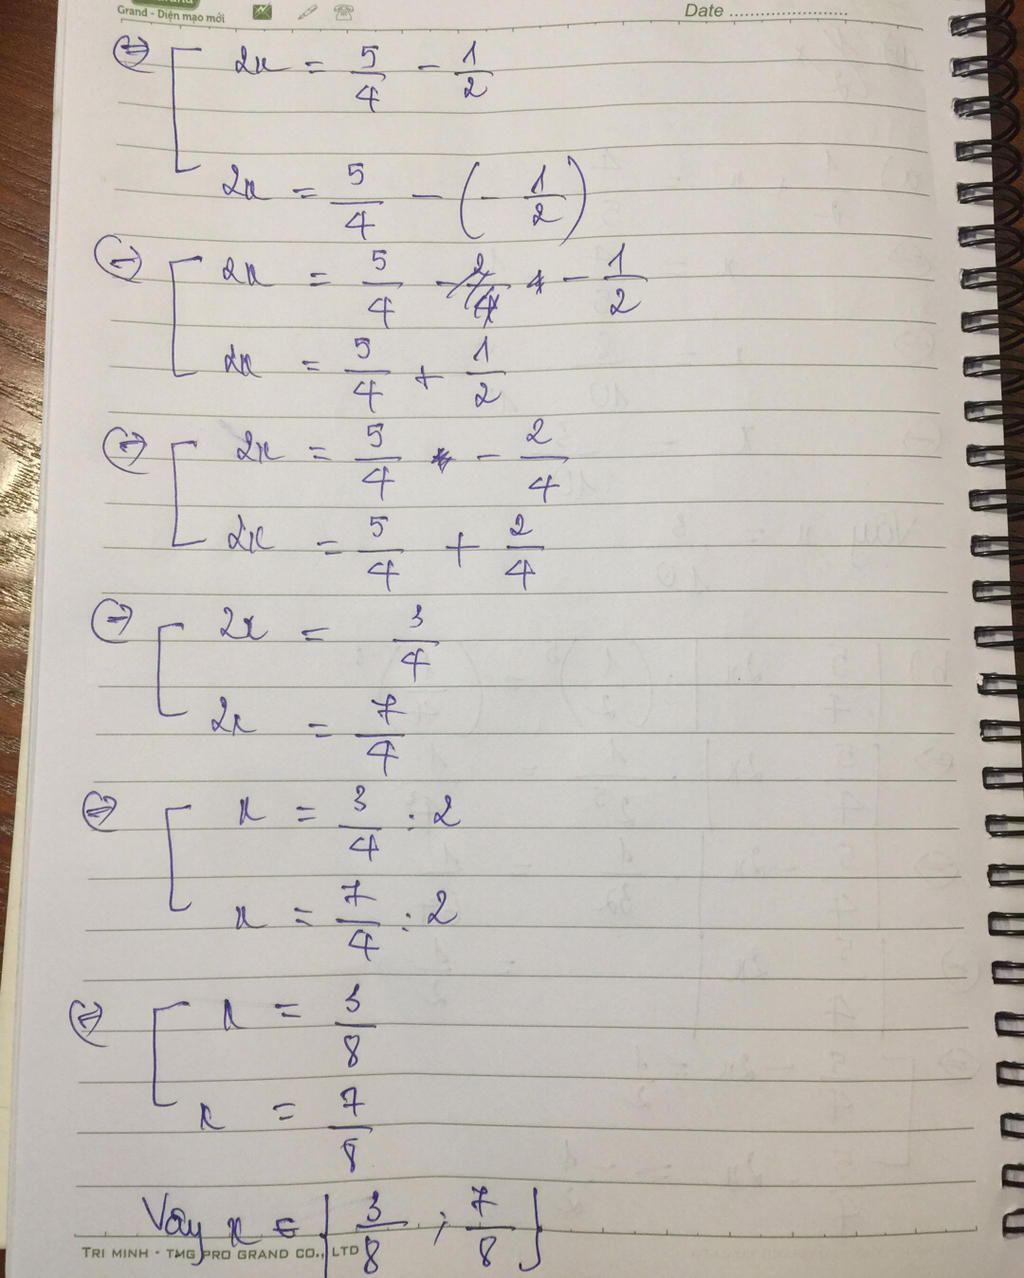 Grand - Diện mạo mới Date
⇔ [ 2x = 5/4 - 1/2
2x = 5/4 - (- 1/2)
⇔ [ 2x = 5/4 - 1/2
2x = 5/4 + 1/2
⇔ [ 2x = 5/4 - 2/4
2x = 5/4 + 2/4
⇔ [ 2x = 3/4
2x = 7/4
⇔ [ x = 3/4 : 2
x = 7/4 : 2
⇔ [ x = 3/8
x = 7/8
Vậy x = { 3/8 ; 7/8 }
TRI MINH - TMG PRO GRAND CO., LTD